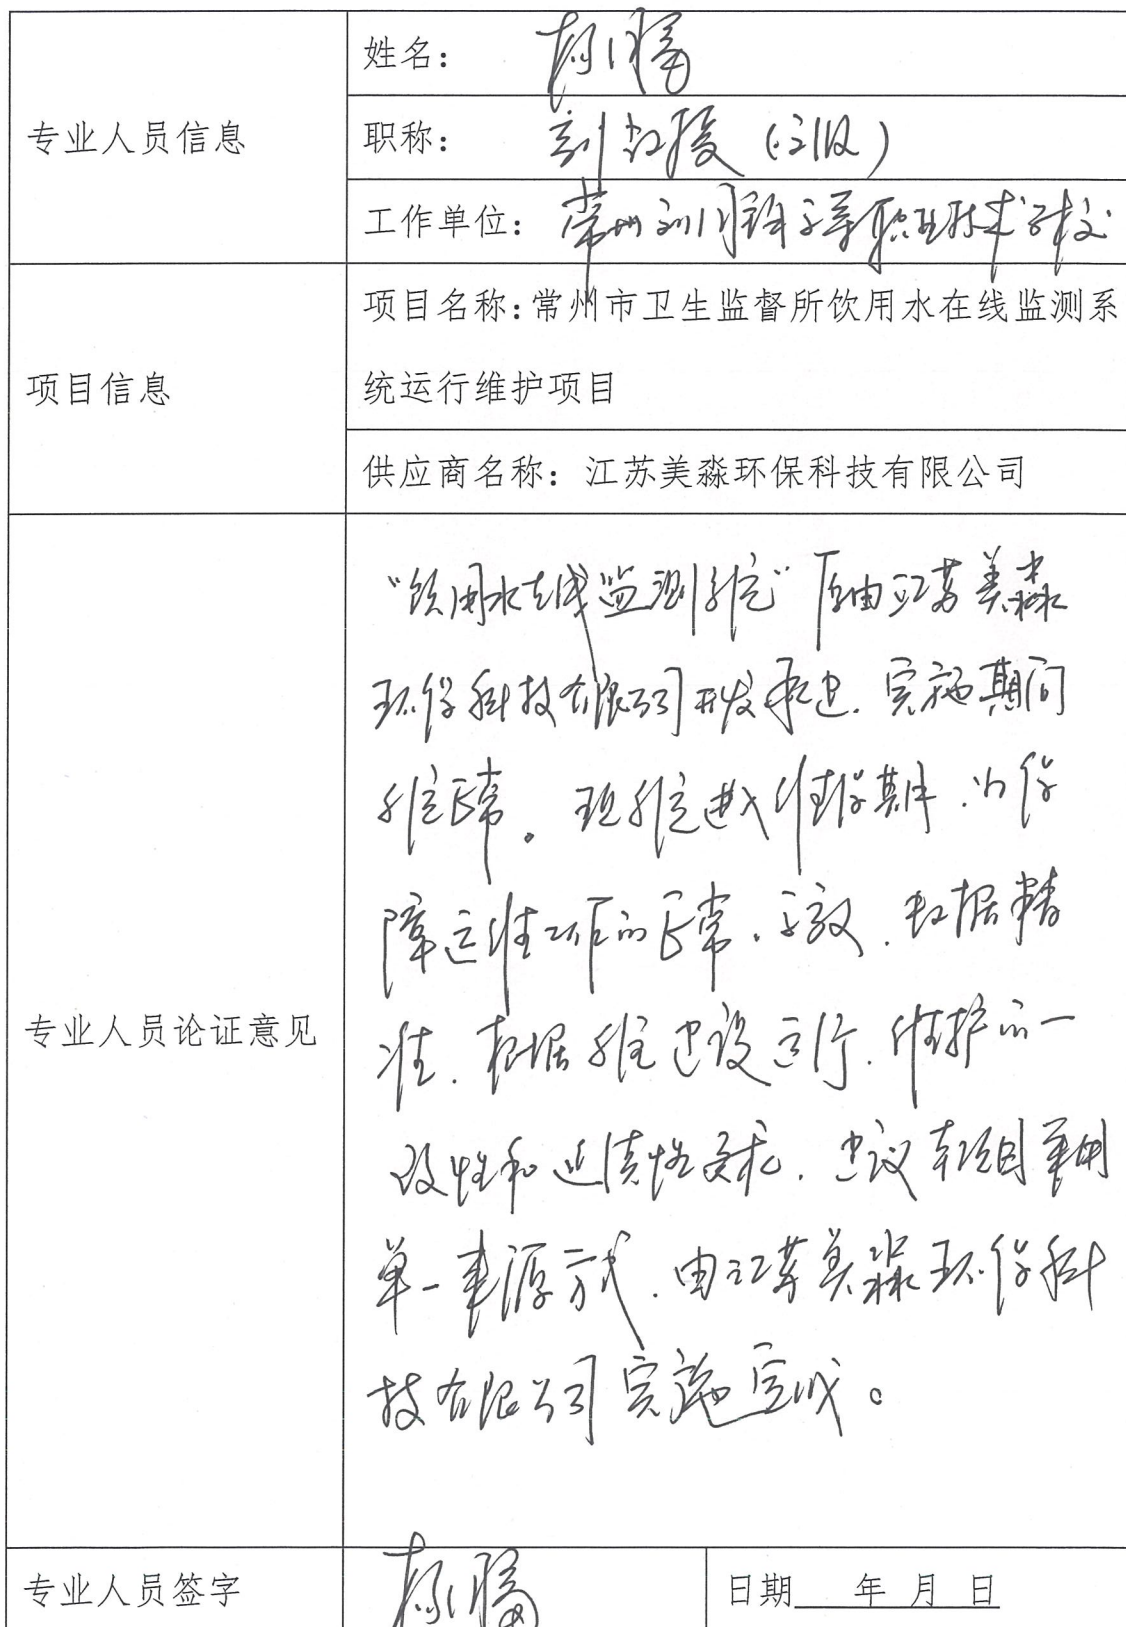 专业人员信息
姓名：
职称： 副教授（高级）
工作单位： 常州刘国钧高等职业技术学校
项目信息
项目名称：常州市卫生监督所饮用水在线监测系
统运行维护项目
供应商名称：江苏美淼环保科技有限公司
专业人员论证意见
“饮用水在线监测系统”原由江苏美淼
环保科技有限公司开发承建，实施期间
系统正常。现系统进入维保期，为保
障运维工作的正常、高效、数据精
准，根据系统建设运行、维护的一
致性和延续性要求，建议本项目采用
单一来源方式，由江苏美淼环保科
技有限公司实施完成。
专业人员签字
日期 年 月 日